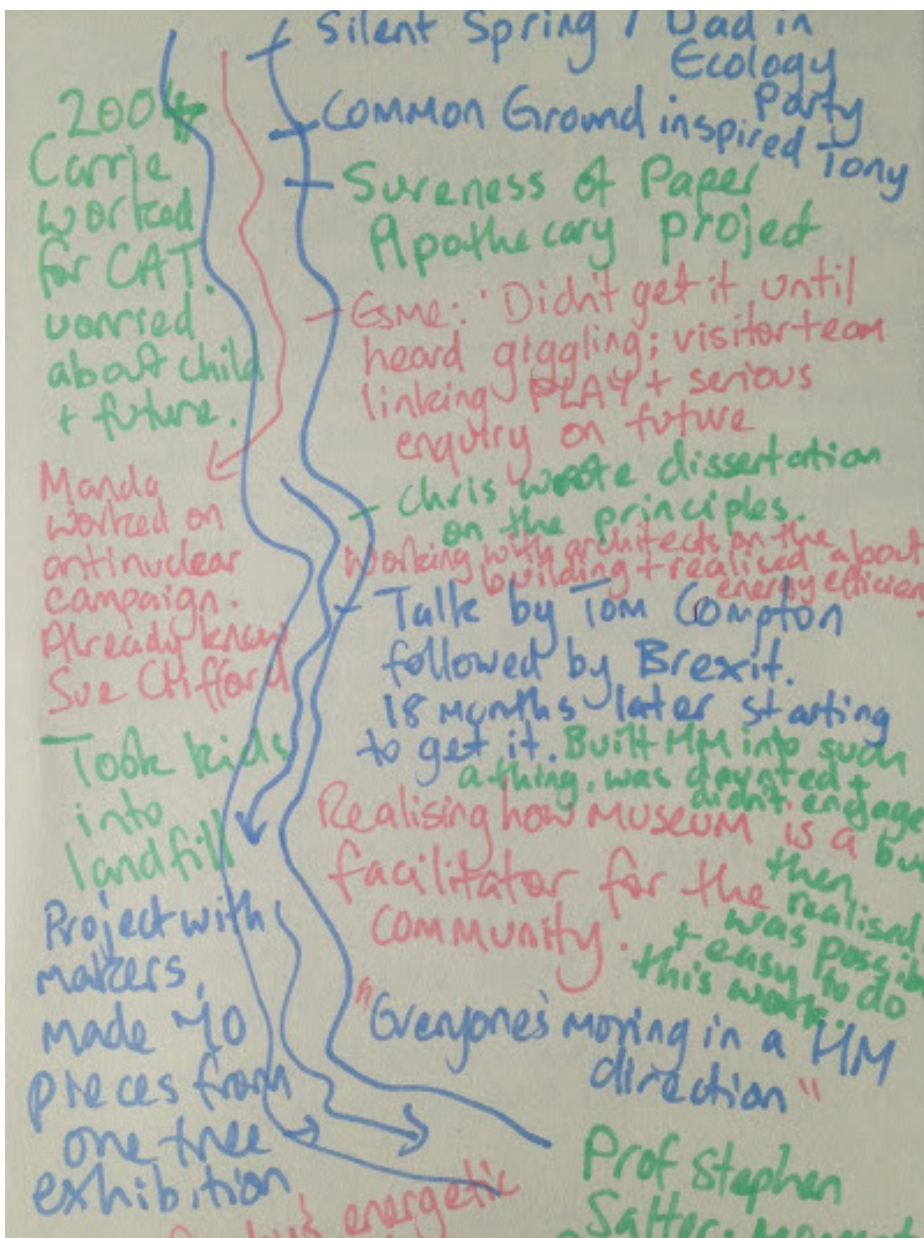 Silent Spring / Dad in
Ecology
Party
Common Ground inspired Tony
Sureness of Paper
Apothecary project
Esme: 'Didn't get it until
heard giggling; visitor team
linking PLAY + serious
enquiry on future
Chris wrote dissertation
on the principles.
Working with architects on the
building + realised about
energy efficien
Talk by Tom Compton
followed by Brexit.
18 months later starting
to get it.
Built HM into such
a thing, was daunted +
didn't engage
but
then
realised
was possib
+ easy to do
this work.
Realising how MUSEUM is a
facilitator for the
community.
"Everyone's moving in a HM
direction"
Prof Stephen
Salter.
2004
Carrie
worked
for CAT.
worried
about child
+ future.
Manda
worked on
antinuclear
campaign.
Already knew
Sue Clifford
Took kids
into
landfill
Project with
makers,
made 40
pieces from
one tree
exhibition
energetic